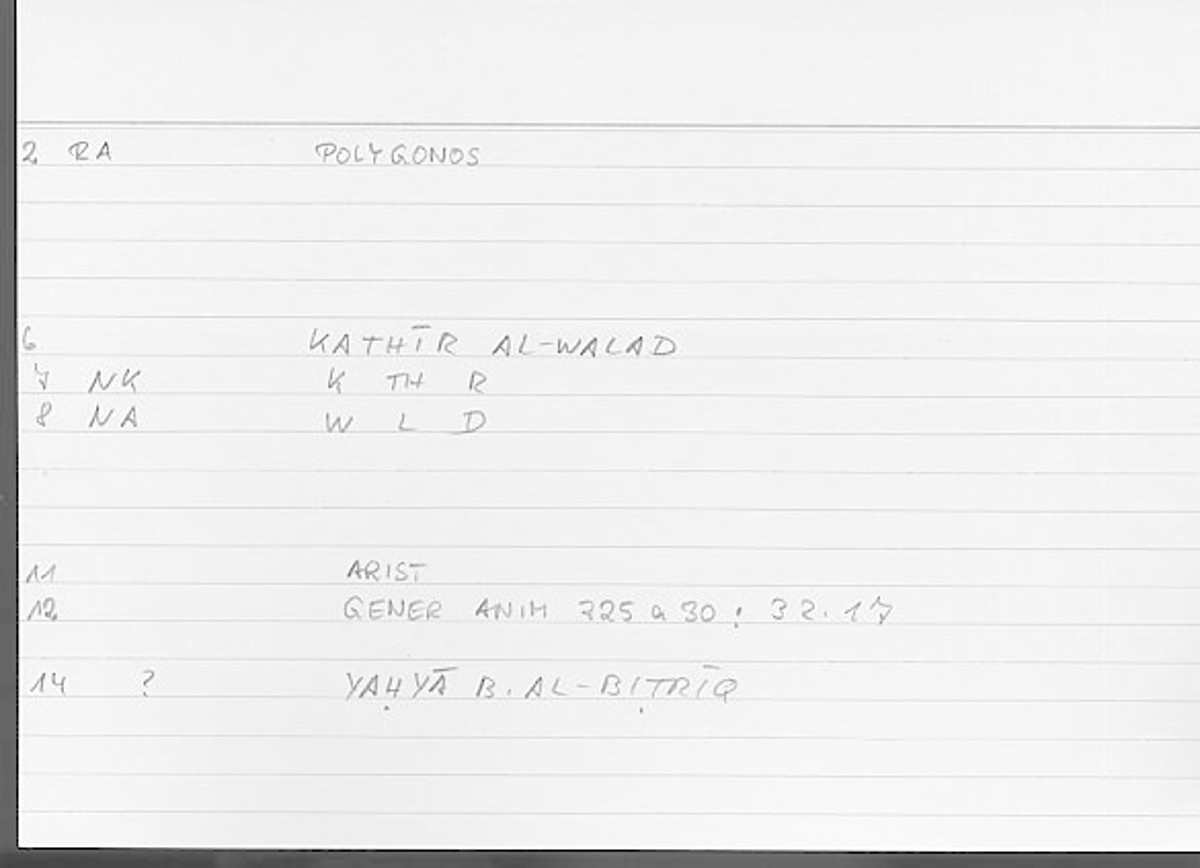 2 RA POLYGONOS
6 KATHĪR AL-WALAD
7 NK K TH R
8 NA W L D
11 ARIST
12 GENER ANIM 725 a 30 ; 32.17
14 ? YAḤYĀ B. AL-BIṬRĪQ